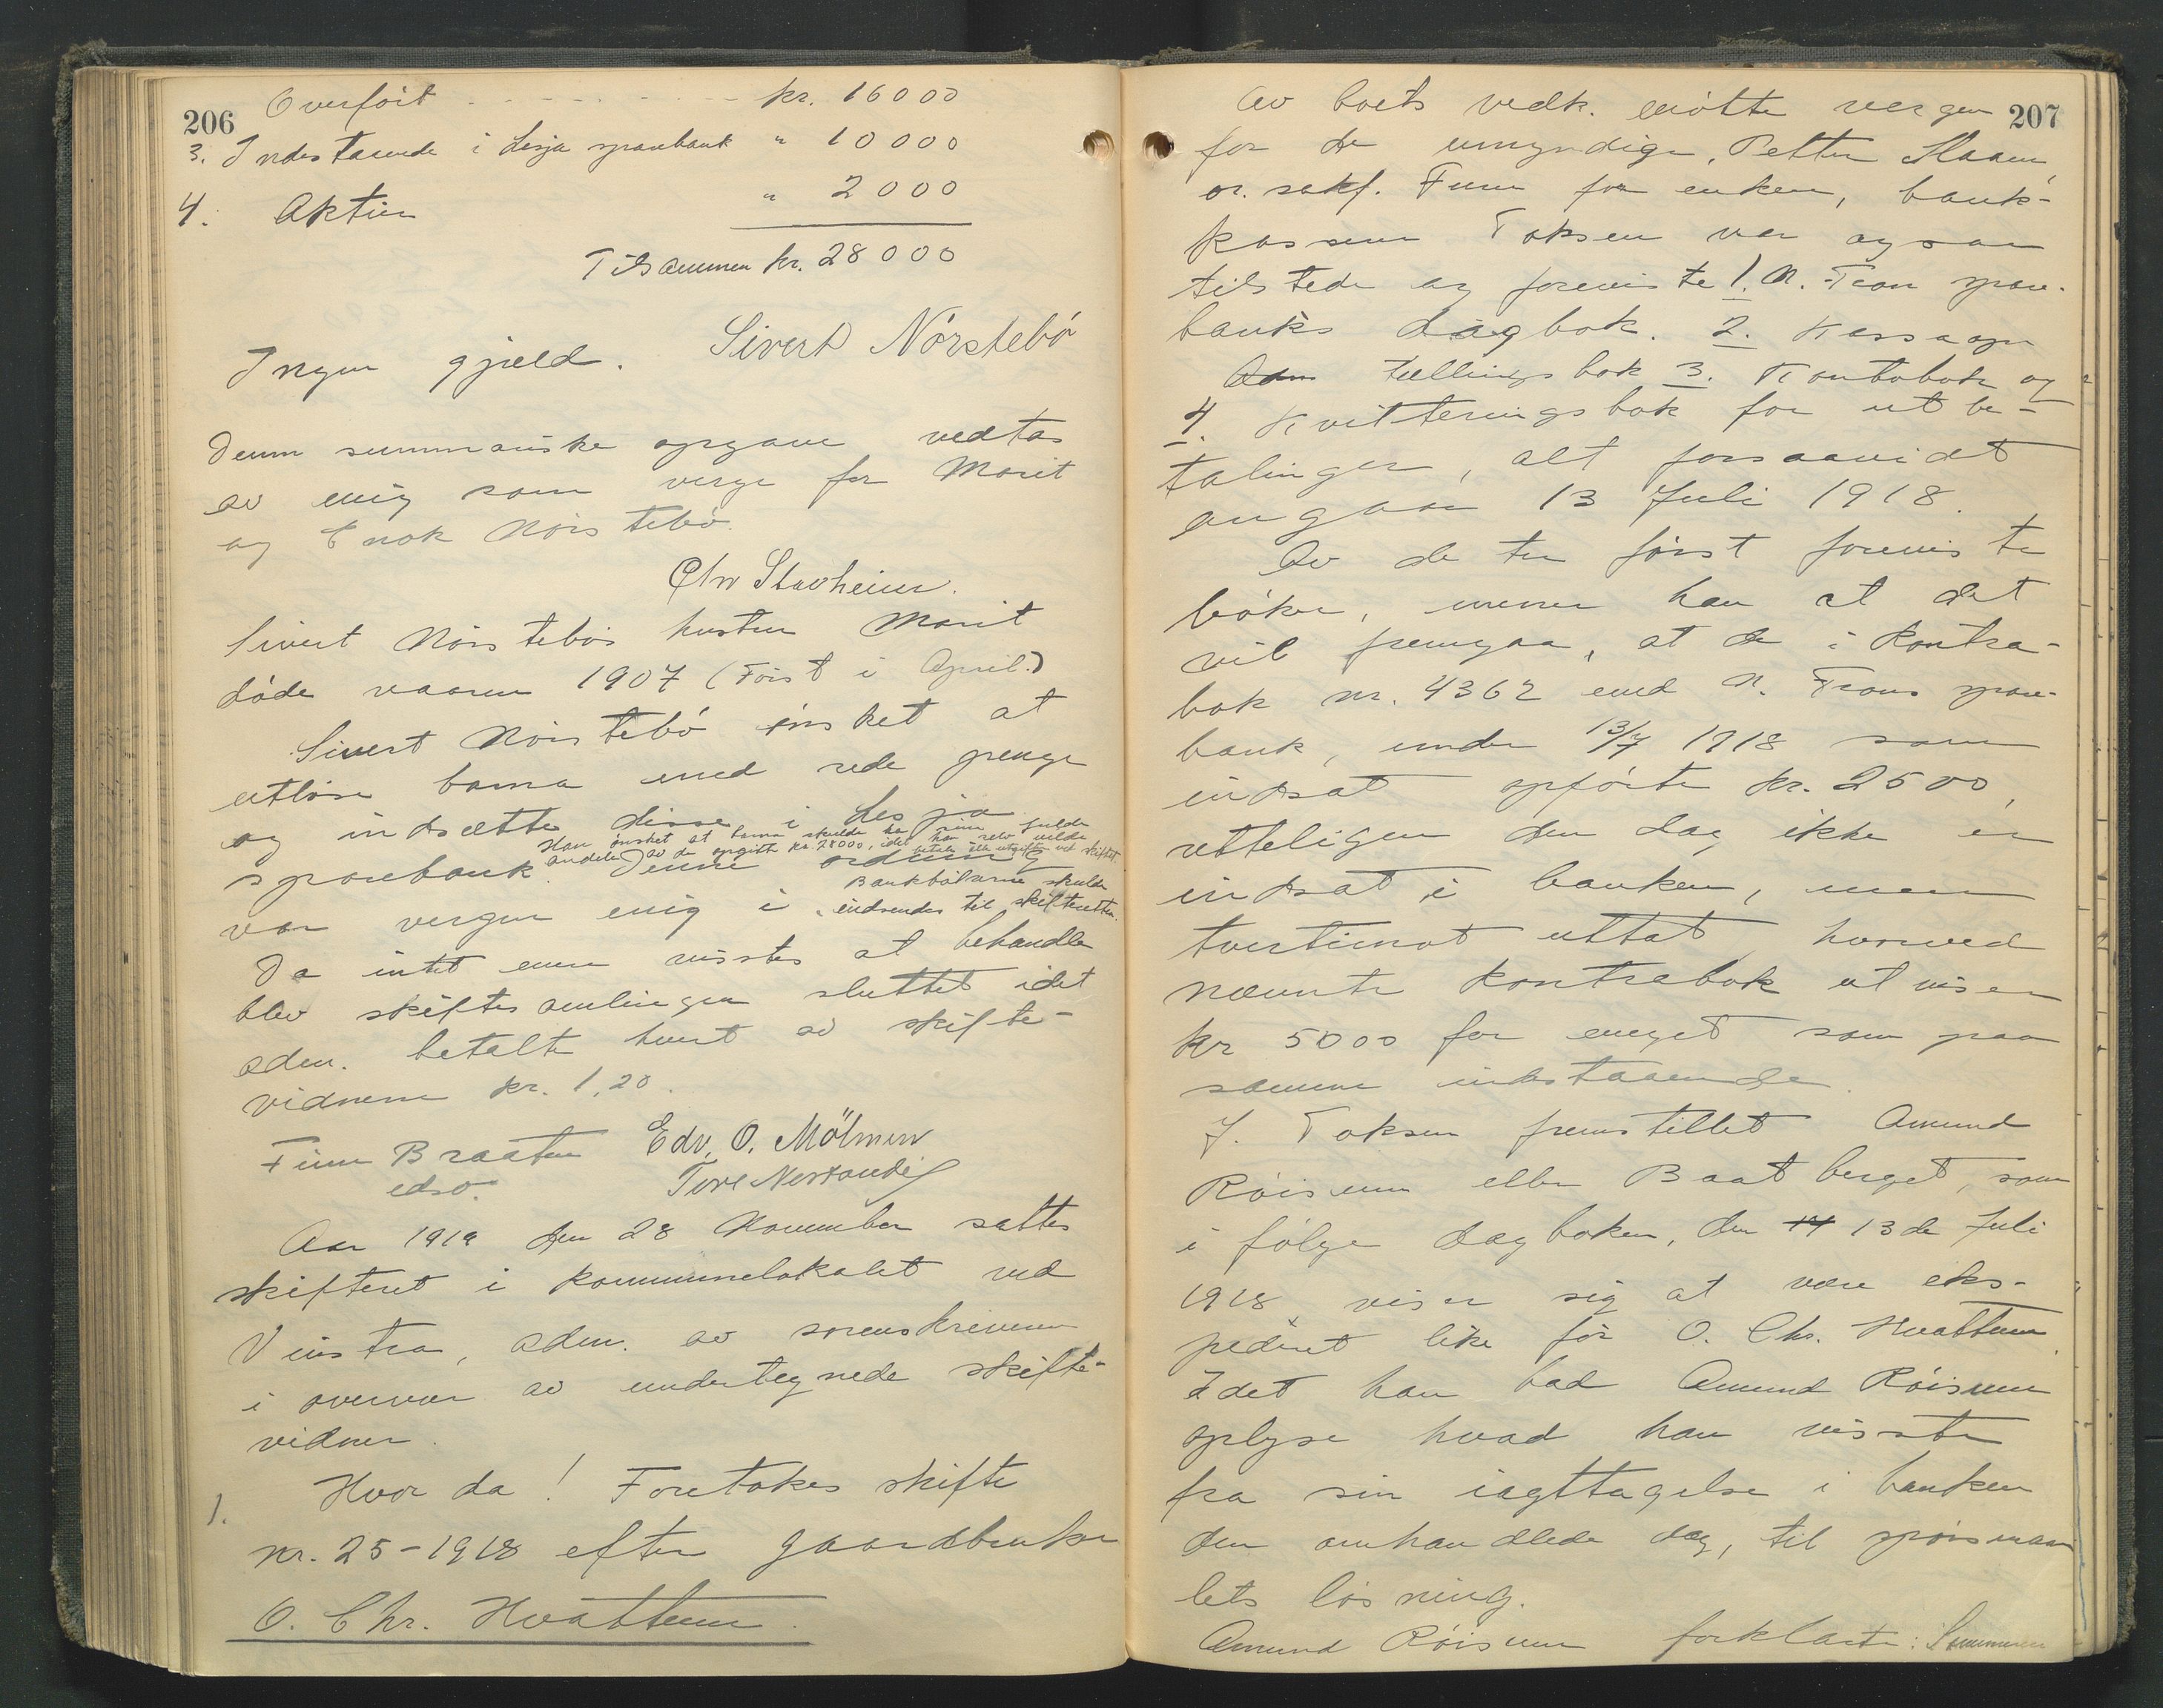 206
Overført - - - - - - - kr. 16000
3. Indestaaende i Lesja sparebank " 10000
4. Aktier " 2000
Tilsammen kr. 28000
Sivert Nörstebö
Ingen gjæld.
Denne summariske opgave vedtas
av mig som verge for Marit
og Enok Nörstebö.
Chr Stavheim.
Sivert Nörstebös hustru Marit
døde vaaren 1907 (Først i April.)
Sivert Nörstebö ønsket at
utløse barna med rede penge
og indsætte disse i Lesja
sparebank. Denne ordning
Han ønsket at barna skulde ha sine fulde
andeler av de opgivne kr. 28000, idet han selv vilde
betale alle utgifter ved skiftet
var vergen enig i. Bankbøkerne skulde
indsendes til skifteretten.
Da intet mere visstes at behandle
blev skiftesamlingen sluttet idet
adm. betalte hvert av skifte-
vidnerne kr. 1,20.
Finn Braaten Edv. O. Mölmen
edsv. Tore Nordsandli
Aar 1919 den 28 November sattes
skifteret i kommunelokalet ved
Vinstra, adm. av sorenskriveren
i overvær av undertegnede skifte-
vidner.
Hvor da! Foretokes skifte
1.
nr. 25-1918 efter gaardbruker
O. Chr. Hvattum.
207
Av boets vedk. møtte vergen
for de umyndige, Petter Haave,
or. sakf. Furu for enken, bank-
kasserer Toksen var ogsaa
tilstede og foreviste 1. N. Frons spare-
banks dagbok. 2. Kassaop
tællingsbok 3. Kontobok og
4. Kvitteringsbok for utbe-
talinger, alt forsaavidt
angaar 13 Juli 1918.
Av de tre først foreviste
bøker, mener han at det
vil fremgaa, at de i kontra-
bok nr. 4362 med N. Frons spare-
bank, under 13/7 1918 som
indsat opførte kr. 2500,
retteligen den dag ikke er
indsat i banken, men
tvertimot uttat hvorved
nævnte kontrabok utviser
kr 5000 for meget som paa
samme indestaaende.
J. Toksen fremstillet Amund
Röisum eller Baatberget, som
i følge dagboken, den 14 13de Juli
1918, viser sig at være eks-
pedert like før O. Chr. Hvattum.
Idet han bad Amund Röisum
oplyse hvad han visste
fra sin iagttagelse i banken
den omhandlede dag, til spörsmaa
lets lösning.
Amund Röisum forklarte: Sammen